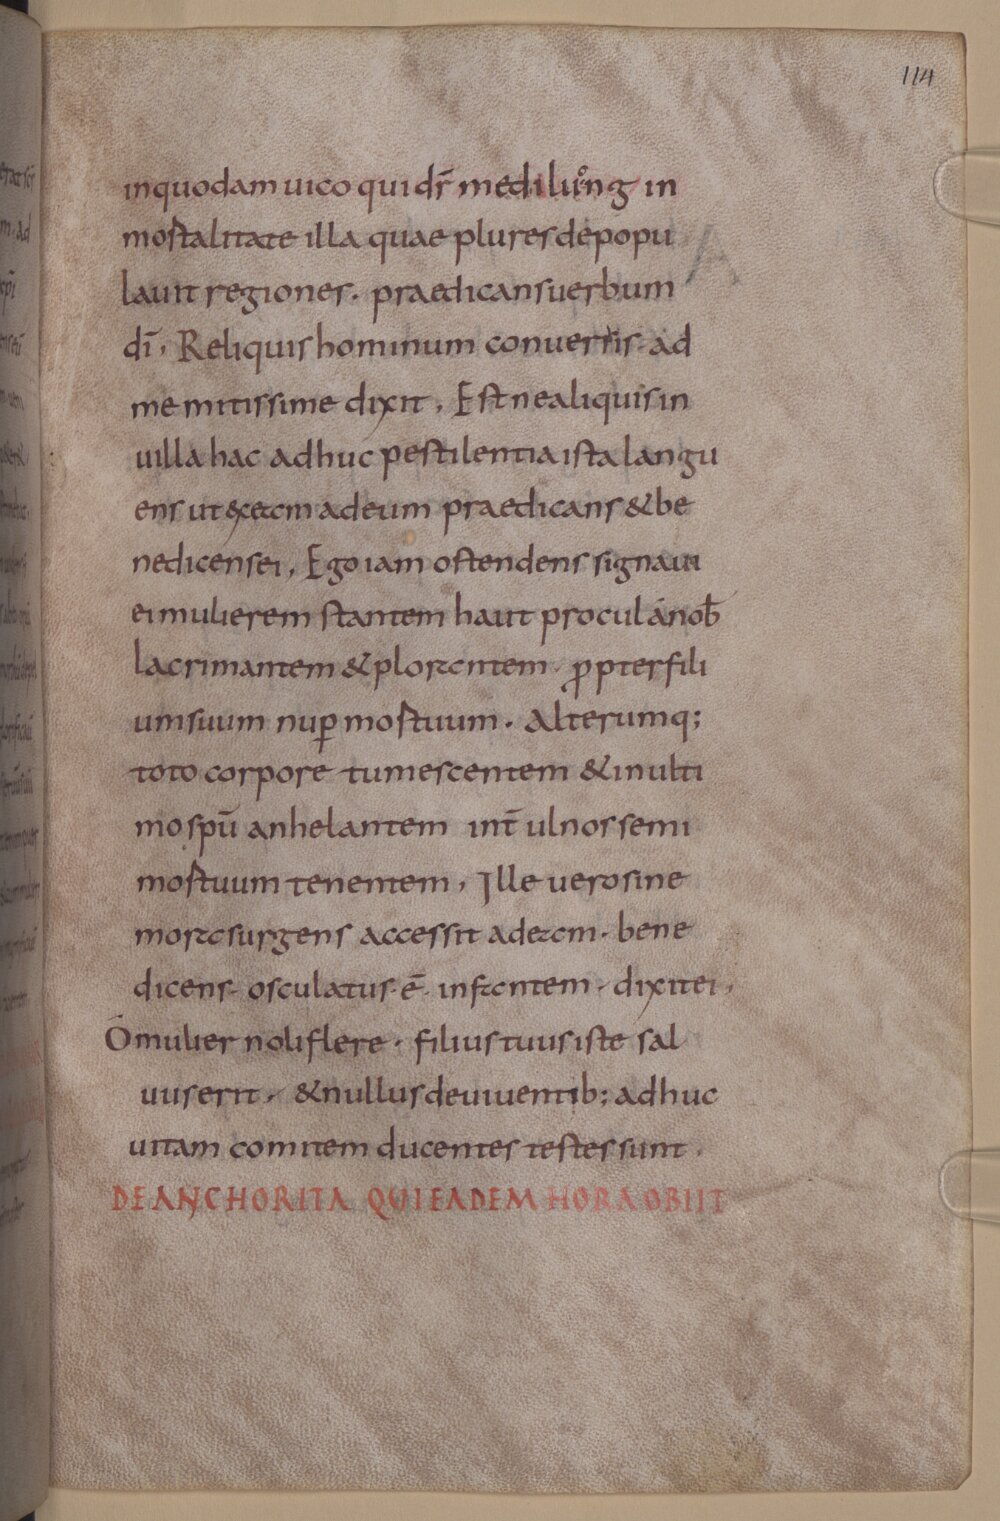 114
inquodam uico qui dr̄ mediluong in
mortalitate illa quae plures depopu
lauit regiones. praedicans uerbum
dī. Reliquis hominum conuersis ad
me mitissime dixit. Estne aliquis in
uilla hac adhuc pestilentia ista langu
ens ut & exeam ad eum praedicans & be
nedicens ei. Ego iam ostendens signaui
ei mulierem stantem haut procul á nob̄
lacrimantem & plorantem. propter fili
um suum nup̄ mortuum. Alterumq;
toto corpore tumescentem & in ulti
mo sp̄u anhelantem int̄ ulnos semi
mortuum tenentem. Ille uero sine
mora surgens accessit ad eam. bene
dicens. osculatus. ē. infantem. dixit ei.
Ó mulier noli flere. filius tuus iste sal
uus erit. & nullus de uiuentib; adhuc
uitam comitem ducentes testes sunt.
DE ANCHORITA QUI EADEM HORA OBIIT